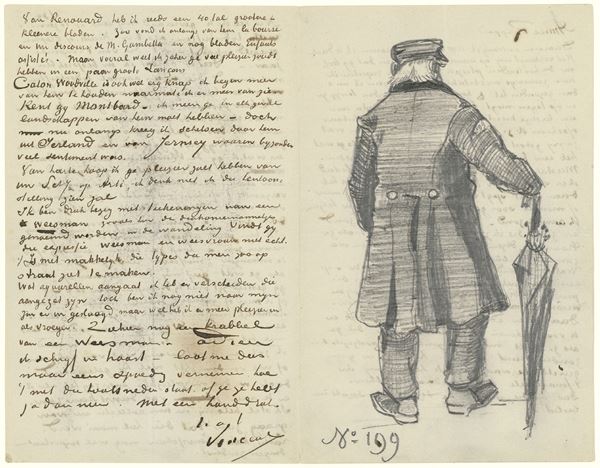 Van Renouard heb ik reeds een 40tal grootere &
kleinere bladen. Zoo vond ik onlangs van hem la bourse
en un discours de M. Gambetta en nog bladen Enfants
assistés. – Maar vooral weet ik zeker ge veel pleizier zoudt
hebben in een paar groote Lançons
Caton Woodville is ook wel erg knap ik begin meer
van hem te houden naarmate ik er meer van zie
Kent gij Montbard – ik meen ge in elk geval
landschappen van hem moet hebben – doch
nu onlangs kreeg ik schetsen door hem
uit Ierland en van Jersey waarin bijzonder
veel sentiment was.
Van harte hoop ik ge pleizier zult hebben van
Uw op Arti. ik denk wel ik die tentoon-
stelling zien zal
Ik ben druk bezig met teekeningen van een
weesman zooals hier de diakoniemannetjes
genoemd worden in de wandeling Vindt gij
die expressie weesman en weesvrouw niet echt.
't Is niet makkelijk die types die men zoo op
straat ziet te maken.
Wat aquarellen aangaat ik heb er verscheiden die
aangezet zijn toch ben ik nog niet naar mijn
zin er in geslaagd maar wel heb ik er meer pleizier in
als vroeger. Ziehier nog een krabbel
van een Weesman – adieu
ik schrijf in haast – laat me dus
maar eens spoedig vernemen hoe
't met die houtsneden staat of ge ze hebt
ja dan neen met een handdruk.
t. à t.
Vincent
No 199